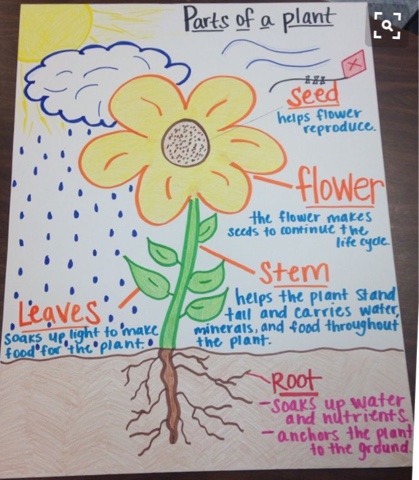 Parts of a plant
seed
helps flower
reproduce.
flower
the flower makes
seeds to continue the
life cycle.
Stem
helps the plant stand
tall and carries water,
minerals, and food throughout
the plant.
Leaves
soaks up light to make
food for the plant.
ROOT
- soaks up water
and nutrients.
- anchors the plant
to the ground.